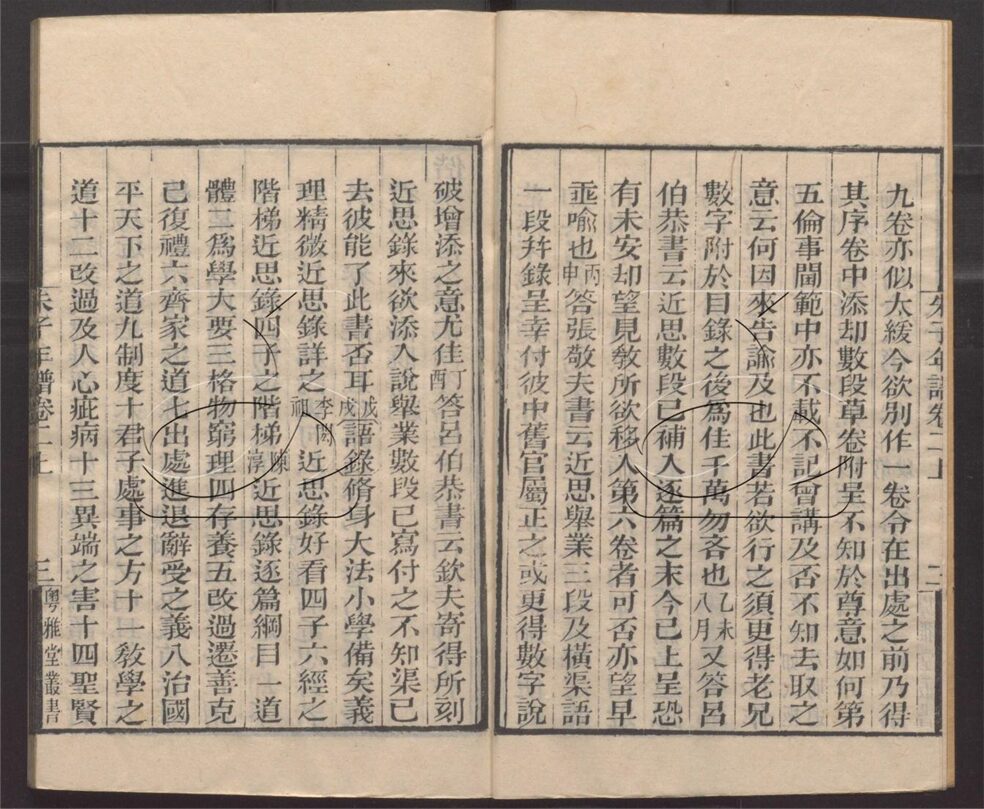 九卷亦似太緩今欲別作一卷令在出處之前乃得
其序卷中添却數段草卷附呈不知於尊意如何第
五倫事閫範中亦不載不記曾講及否不知去取之
意云何因來告諭及也此書若欲行之須更得老兄
數字附於目錄之後爲佳千萬勿吝也乙未八月又答呂
伯恭書云近思數段已補入逐篇之末今已上呈恐
有未安却望見敎所欲移入第六卷者可否亦望早
垂喻也丙申答張敬夫書云近思舉業三段及橫渠語
一段幷錄呈幸付彼中舊官屬正之或更得數字說
朱子年譜卷二上
二
破增添之意尤佳丁酉答呂伯恭書云欽夫寄得所刻
近思錄來欲添入說舉業數段已寫付之不知渠已
去彼能了此書否耳戊戌語錄脩身大法小學備矣義
理精微近思錄詳之李閎祖近思錄好看四子六經之
階梯近思錄四子之階梯陳淳近思錄逐篇綱目一道
體二爲學大要三格物窮理四存養五改過遷善克
己復禮六齊家之道七出處進退辭受之義八治國
平天下之道九制度十君子處事之方十一敎學之
道十二改過及人心疵病十三異端之害十四聖賢
朱子年譜卷二上
三
粵雅堂叢書